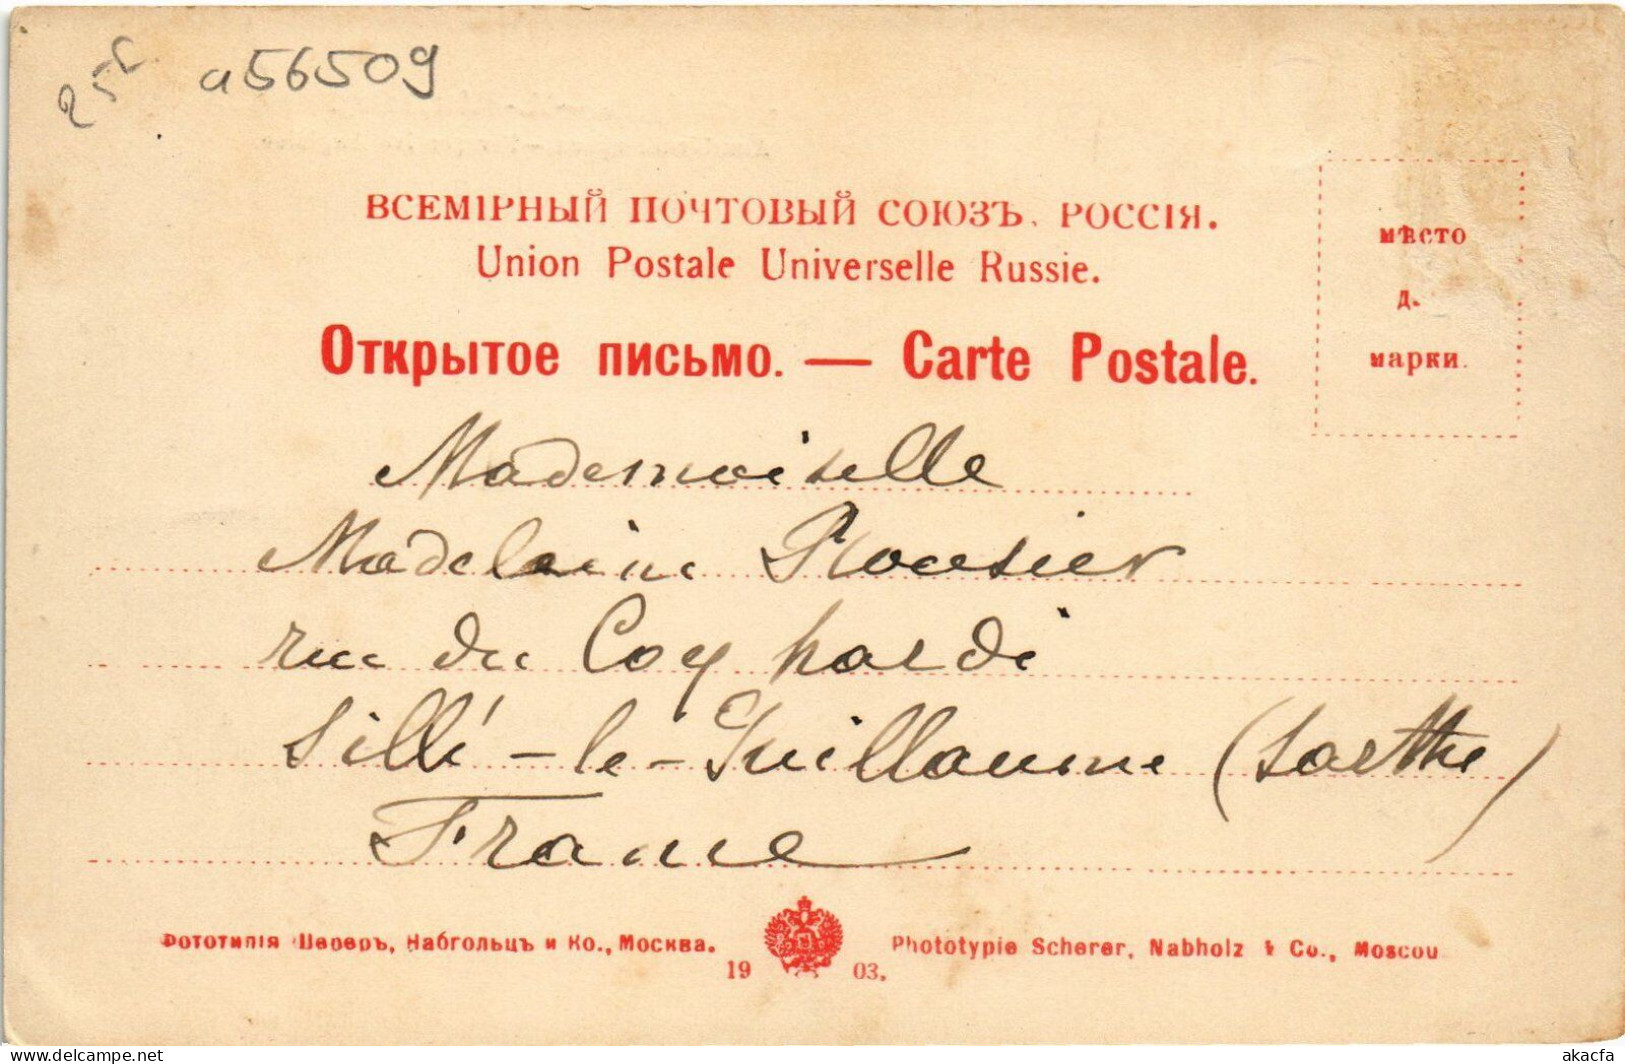 25 a56509
ВСЕМІРНЫЙ ПОЧТОВЫЙ СОЮЗЪ, РОССІЯ.
Union Postale Universelle Russie.
Открытое письмо. — Carte Postale.
мѣсто
д.
марки.
Mademoiselle
Madeleine
rue du Coq hardi
Sillé-le-Guillaume (Sarthe)
France
Фототипія Шереръ, Набгольцъ и Ко., Москва.
19 03.
Phototypie Scherer, Nabholz & Co., Moscou
akacfa